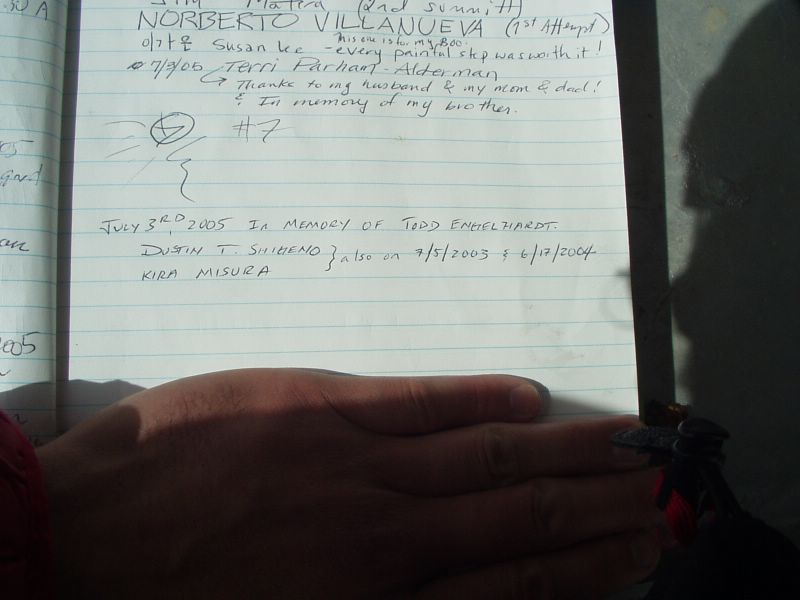 Jim Matera (2nd summit)
NORBERTO VILLANUEVA (1st Attempt)
This one is for my BOO.
이가운 Susan Lee - every painful step was worth it!
7/3/05 Terri Parham-Alderman
Thanks to my husband & my mom & dad!
& In memory of my brother.
#7
JULY 3RD, 2005 IN MEMORY OF TODD ENGELHARDT.
DUSTIN T. SHIGENO } also on 7/5/2003 & 6/17/2004
KIRA MISURA
005